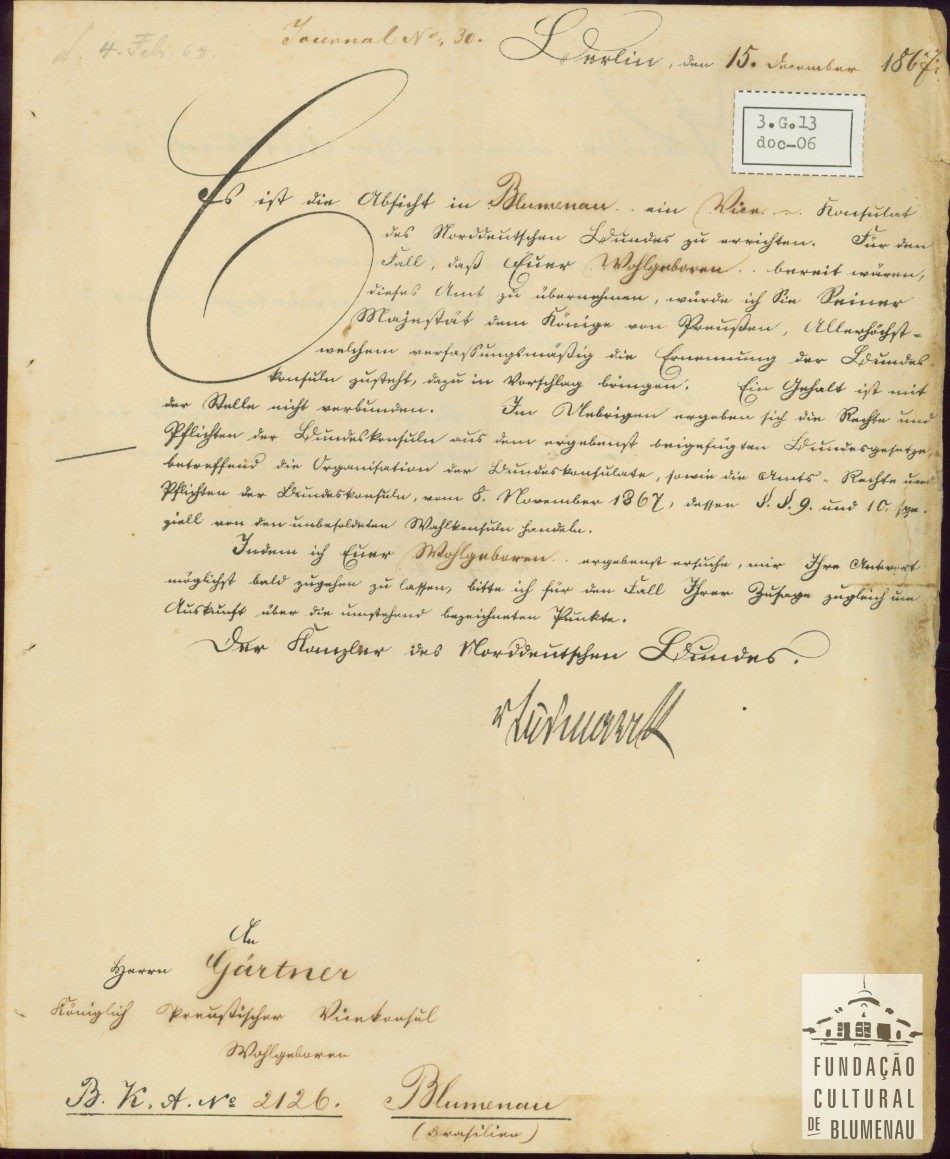 d. 4. Feb. 68.
Journal No. 30.
Berlin, den 15. December 1867.
3.G.13
doc-06
Es ist die Absicht in Blumenau ein Vice- Konsulat
des Norddeutschen Bundes zu errichten. Für den
Fall, daß Euer Wohlgeboren bereit wären,
dieses Amt zu übernehmen, würde ich Sie Seiner
Majestät dem Könige von Preußen, Allerhöchst-
welchem verfassungsmäßig die Ernennung der Bundes-
konsuln zusteht, dazu in Vorschlag bringen. Ein Gehalt ist mit
der Stelle nicht verbunden. Im Uebrigen ergeben sich die Rechte und
Pflichten der Bundeskonsuln aus dem ergebenst beigefügten Bundesgesetze,
betreffend die Organisation der Bundeskonsulate, sowie die Amts-Rechte und
Pflichten der Bundeskonsuln, vom 8. November 1867, dessen §.§. 9. und 10. spe-
ziell von den unbesoldeten Wahlkonsuln handeln.
Indem ich Euer Wohlgeboren ergebenst ersuche, mir Ihre Antwort
möglichst bald zugehen zu lassen, bitte ich für den Fall Ihrer Zusage zugleich um
Auskunft über die umstehend bezeichneten Punkte.
Der Kanzler des Norddeutschen Bundes.
v Bismarck
An
Herrn Gärtner
Königlich Preußischer Vicekonsul
Wohlgeboren
B. K. A. No 2126. Blumenau
(Brasilien)
FUNDAÇÃO
CULTURAL
DE BLUMENAU